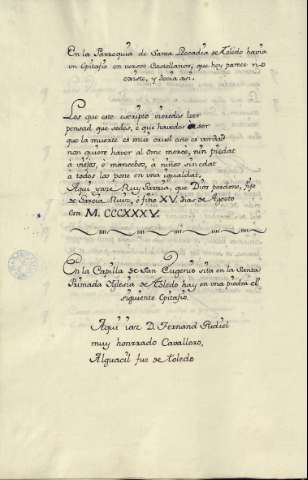 En la Parroquia de Santa Leocadia de Toledo havia
un Epitafio en versos Castellanos, que hoy parece no
existe, y decia asi.
Los que este escripto vinierdes leer
pensad que sodes, ò que havedes à ser
que la muerte es muy cruel ane es verdad
non quiere haver al ome merce, nin piedat
à viejos, ò mancebos, à niños sin edat
à todos los pone en una igualdat,
Aqui yace Ruy Garcia, que Dios perdone, fijo
de Garcia Ruiz, è fino XV. dias de Agosto
Era M. CCCXXXV.
En la Capilla de San Eugenio sita en la Santa
Primada Iglesia de Toledo hay en una piedra el
siguiente Epitafio.
Aqui iace D. Fernand Gudiel
muy honrrado Cavallero,
Alguacil fue de Toledo